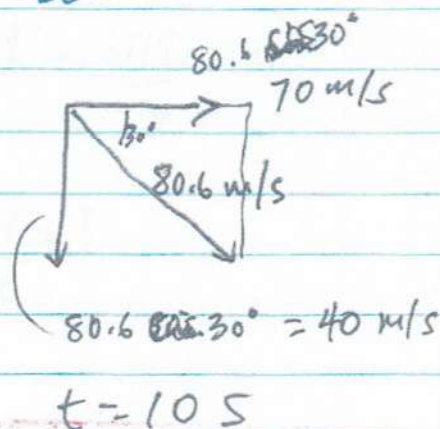 80.6 cos30°
70 m/s
30°
80.6 m/s
80.6 30° = 40 m/s
t = 10 s